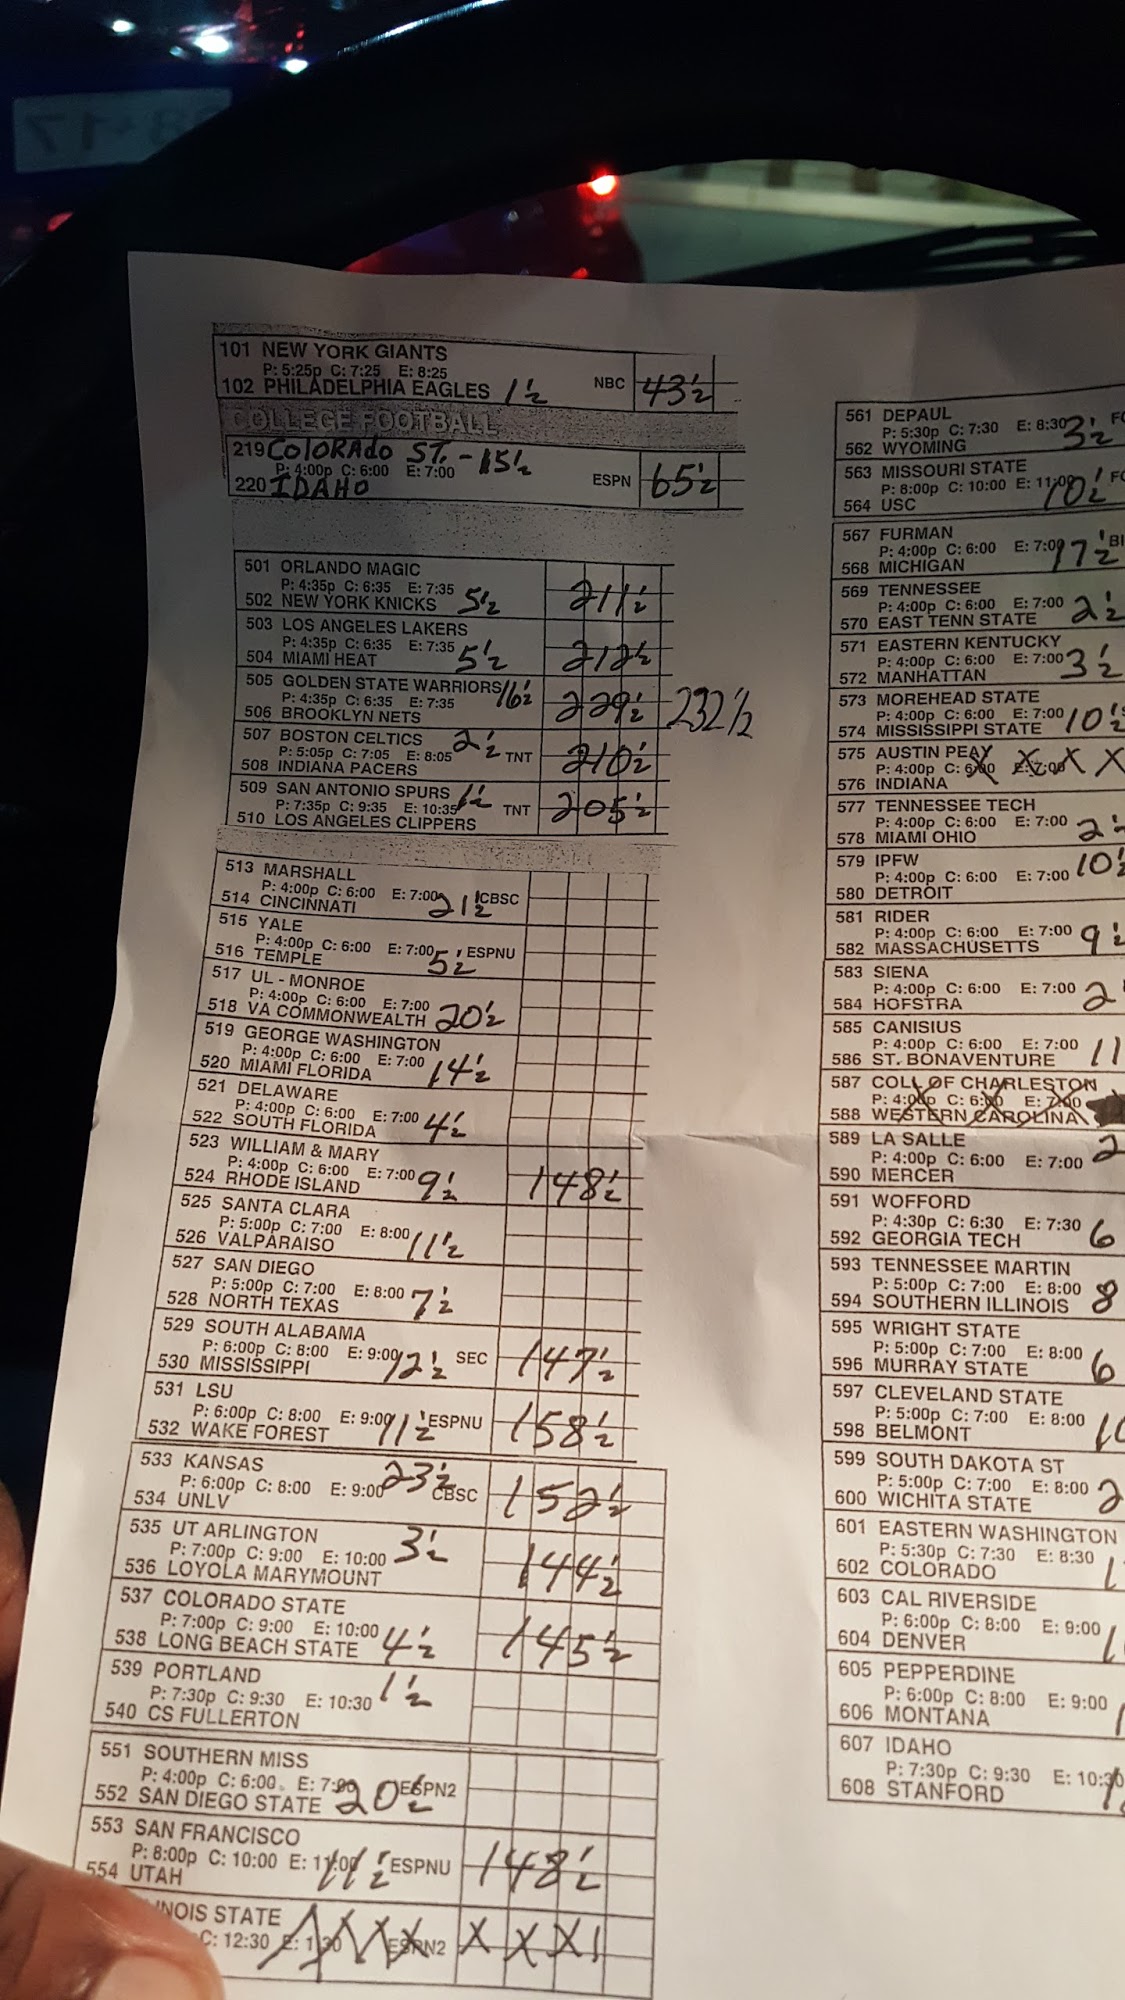 101 NEW YORK GIANTS
P: 5:25p C: 7:25 E: 8:25
102 PHILADELPHIA EAGLES 1½ NBC 43½
COLLEGE FOOTBALL
219 COLORADO ST. -15½
P: 4:00p C: 6:00 E: 7:00 ESPN 65½
220 IDAHO
501 ORLANDO MAGIC
P: 4:35p C: 6:35 E: 7:35
502 NEW YORK KNICKS 5½ 211½
503 LOS ANGELES LAKERS
P: 4:35p C: 6:35 E: 7:35
504 MIAMI HEAT 5½ 212½
505 GOLDEN STATE WARRIORS 16½
P: 4:35p C: 6:35 E: 7:35 229½ 232½
506 BROOKLYN NETS
507 BOSTON CELTICS 2½
P: 5:05p C: 7:05 E: 8:05 TNT 210½
508 INDIANA PACERS
509 SAN ANTONIO SPURS 1½
P: 7:35p C: 9:35 E: 10:35 TNT 205½
510 LOS ANGELES CLIPPERS
513 MARSHALL
P: 4:00p C: 6:00 E: 7:00 CBSC
514 CINCINNATI 21½
515 YALE
P: 4:00p C: 6:00 E: 7:00 ESPNU
516 TEMPLE 5½
517 UL - MONROE
P: 4:00p C: 6:00 E: 7:00
518 VA COMMONWEALTH 20½
519 GEORGE WASHINGTON
P: 4:00p C: 6:00 E: 7:00
520 MIAMI FLORIDA 14½
521 DELAWARE
P: 4:00p C: 6:00 E: 7:00
522 SOUTH FLORIDA 4½
523 WILLIAM & MARY
P: 4:00p C: 6:00 E: 7:00
524 RHODE ISLAND 9½ 148½
525 SANTA CLARA
P: 5:00p C: 7:00 E: 8:00
526 VALPARAISO 11½
527 SAN DIEGO
P: 5:00p C: 7:00 E: 8:00
528 NORTH TEXAS 7½
529 SOUTH ALABAMA
P: 6:00p C: 8:00 E: 9:00 SEC
530 MISSISSIPPI 12½ 147½
531 LSU
P: 6:00p C: 8:00 E: 9:00 ESPNU
532 WAKE FOREST 11½ 158½
533 KANSAS 23½
P: 6:00p C: 8:00 E: 9:00 CBSC 152½
534 UNLV
535 UT ARLINGTON 3½
P: 7:00p C: 9:00 E: 10:00 144½
536 LOYOLA MARYMOUNT
537 COLORADO STATE
P: 7:00p C: 9:00 E: 10:00
538 LONG BEACH STATE 4½ 145½
539 PORTLAND 1½
P: 7:30p C: 9:30 E: 10:30
540 CS FULLERTON
551 SOUTHERN MISS
P: 4:00p C: 6:00 E: 7:00 ESPN2
552 SAN DIEGO STATE 20½
553 SAN FRANCISCO
P: 8:00p C: 10:00 E: 11:00 ESPNU
554 UTAH 11½ 148½
INOIS STATE
C: 12:30 E: 1:30 ESPN2 X X X
561 DEPAUL
P: 5:30p C: 7:30 E: 8:30
562 WYOMING 3½
563 MISSOURI STATE
P: 8:00p C: 10:00 E: 11:00
564 USC 10½
567 FURMAN
P: 4:00p C: 6:00 E: 7:00
568 MICHIGAN 17½
569 TENNESSEE
P: 4:00p C: 6:00 E: 7:00
570 EAST TENN STATE 2½
571 EASTERN KENTUCKY
P: 4:00p C: 6:00 E: 7:00
572 MANHATTAN 3½
573 MOREHEAD STATE
P: 4:00p C: 6:00 E: 7:00
574 MISSISSIPPI STATE 10½
575 AUSTIN PEAY
P: 4:00p C: 6:00 E: 7:00 X X X X
576 INDIANA
577 TENNESSEE TECH
P: 4:00p C: 6:00 E: 7:00
578 MIAMI OHIO 2½
579 IPFW
P: 4:00p C: 6:00 E: 7:00 10½
580 DETROIT
581 RIDER
P: 4:00p C: 6:00 E: 7:00
582 MASSACHUSETTS 9½
583 SIENA
P: 4:00p C: 6:00 E: 7:00
584 HOFSTRA 2
585 CANISIUS
P: 4:00p C: 6:00 E: 7:00
586 ST. BONAVENTURE 11
587 COLL OF CHARLESTON
P: 4:00p C: 6:00 E: 7:00
588 WESTERN CAROLINA
589 LA SALLE 2
P: 4:00p C: 6:00 E: 7:00
590 MERCER
591 WOFFORD
P: 4:30p C: 6:30 E: 7:30
592 GEORGIA TECH 6
593 TENNESSEE MARTIN
P: 5:00p C: 7:00 E: 8:00
594 SOUTHERN ILLINOIS 8
595 WRIGHT STATE
P: 5:00p C: 7:00 E: 8:00
596 MURRAY STATE 6
597 CLEVELAND STATE
P: 5:00p C: 7:00 E: 8:00
598 BELMONT
599 SOUTH DAKOTA ST
P: 5:00p C: 7:00 E: 8:00
600 WICHITA STATE 2
601 EASTERN WASHINGTON
P: 5:30p C: 7:30 E: 8:30
602 COLORADO
603 CAL RIVERSIDE
P: 6:00p C: 8:00 E: 9:00
604 DENVER
605 PEPPERDINE
P: 6:00p C: 8:00 E: 9:00
606 MONTANA
607 IDAHO
P: 7:30p C: 9:30 E: 10:30
608 STANFORD